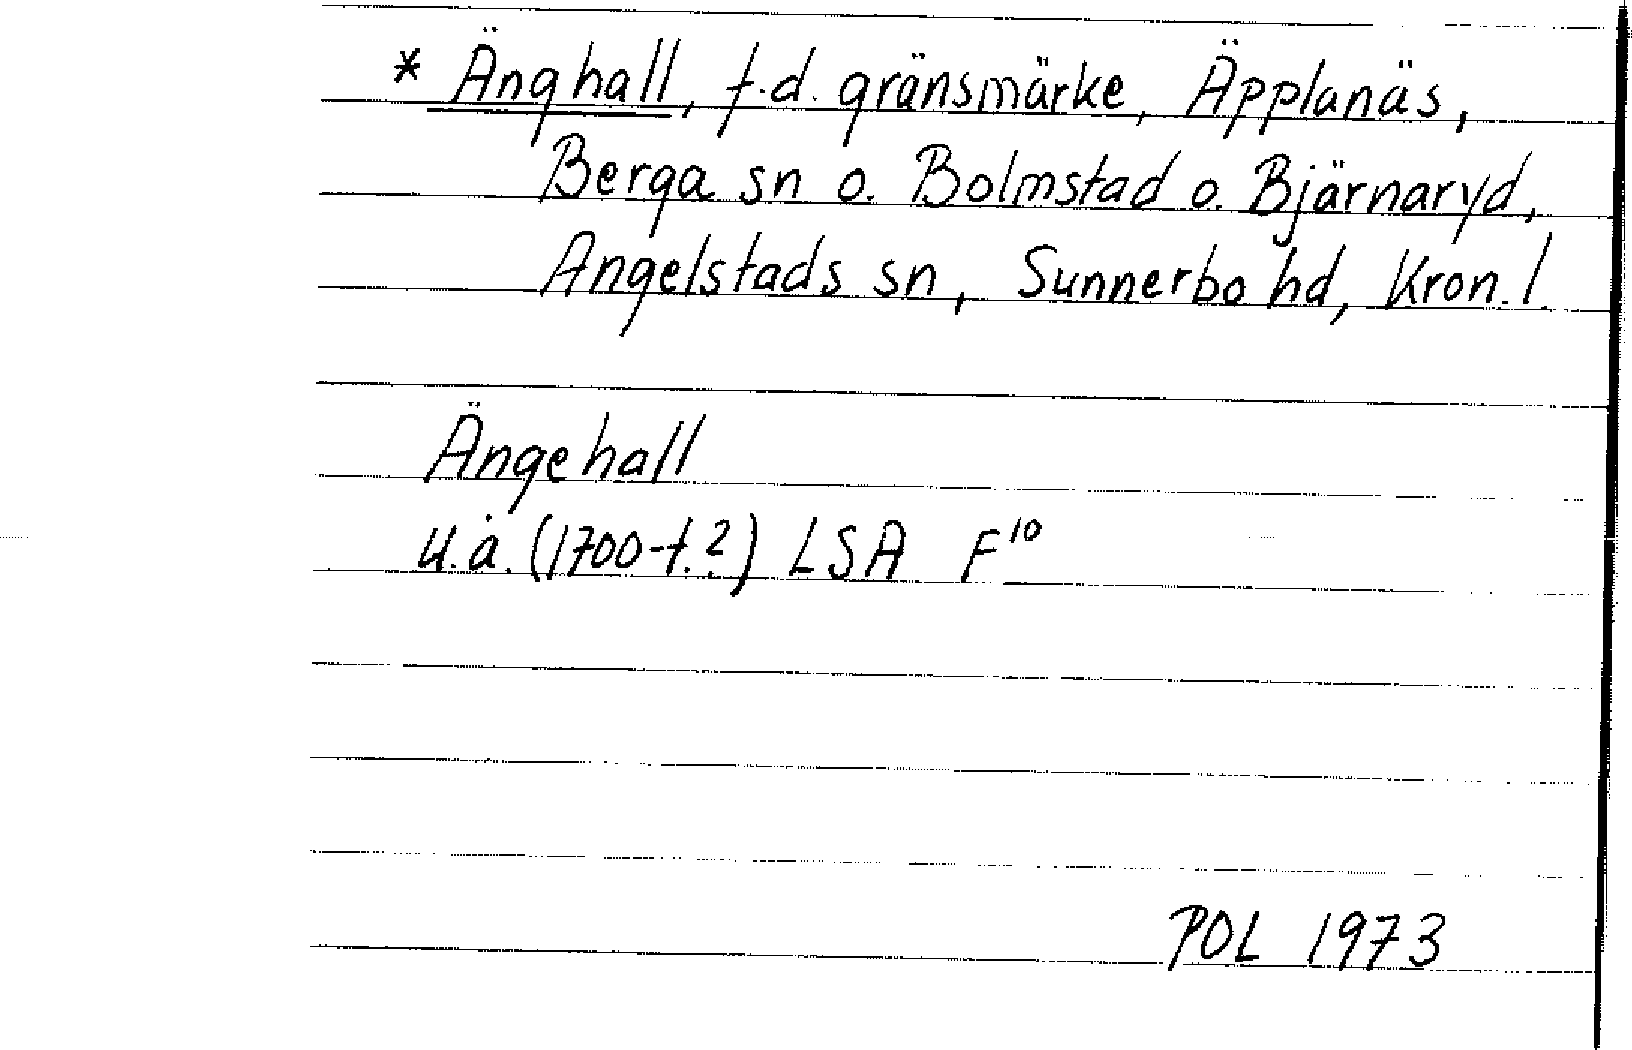 * Änghall, f.d. gränsmärke, Äpplanäs,
Berga sn o. Bolmstad o. Bjärnaryd,
Angelstads sn, Sunnerbo hd, Kron. l.
Ängehall
u.å. (1700-t.?) LSA F¹⁰
POL 1973